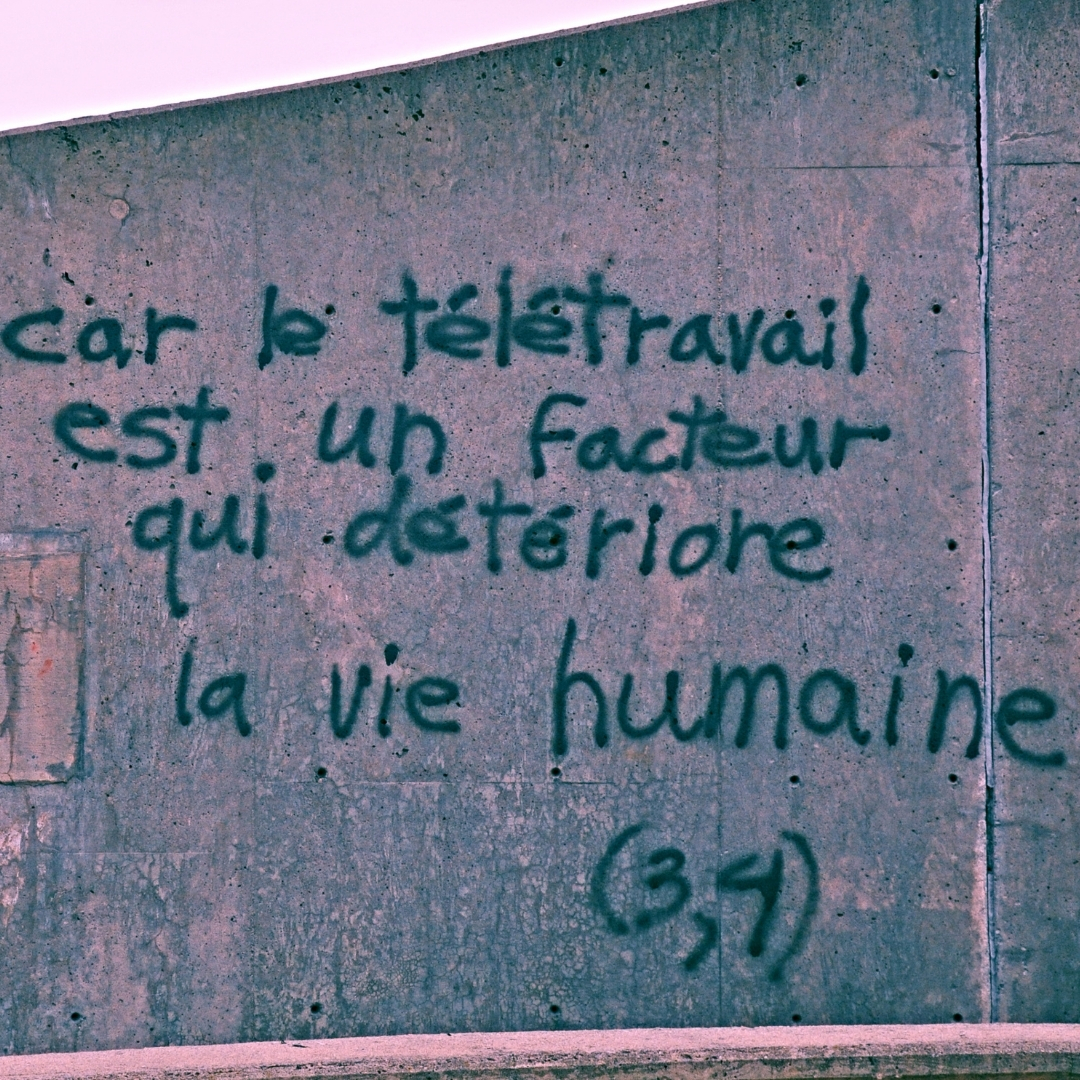 car le télétravail
est un facteur
qui détériore
la vie humaine
(3,4)